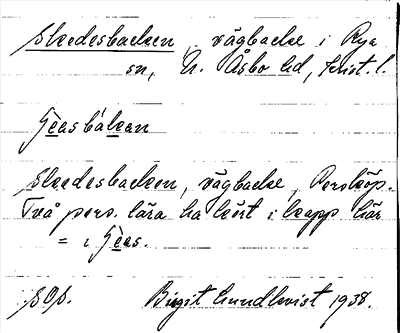 Skedesbacken, vägbacke i Rya
sn, N. Åsbo hd, Krist. l.
Gèas bákan
Skedesbacken, vägbacke, Perstöp.
Två pers. lära ha kört i kapp här
= i Gèas.
Birgit Lundkvist 1938.